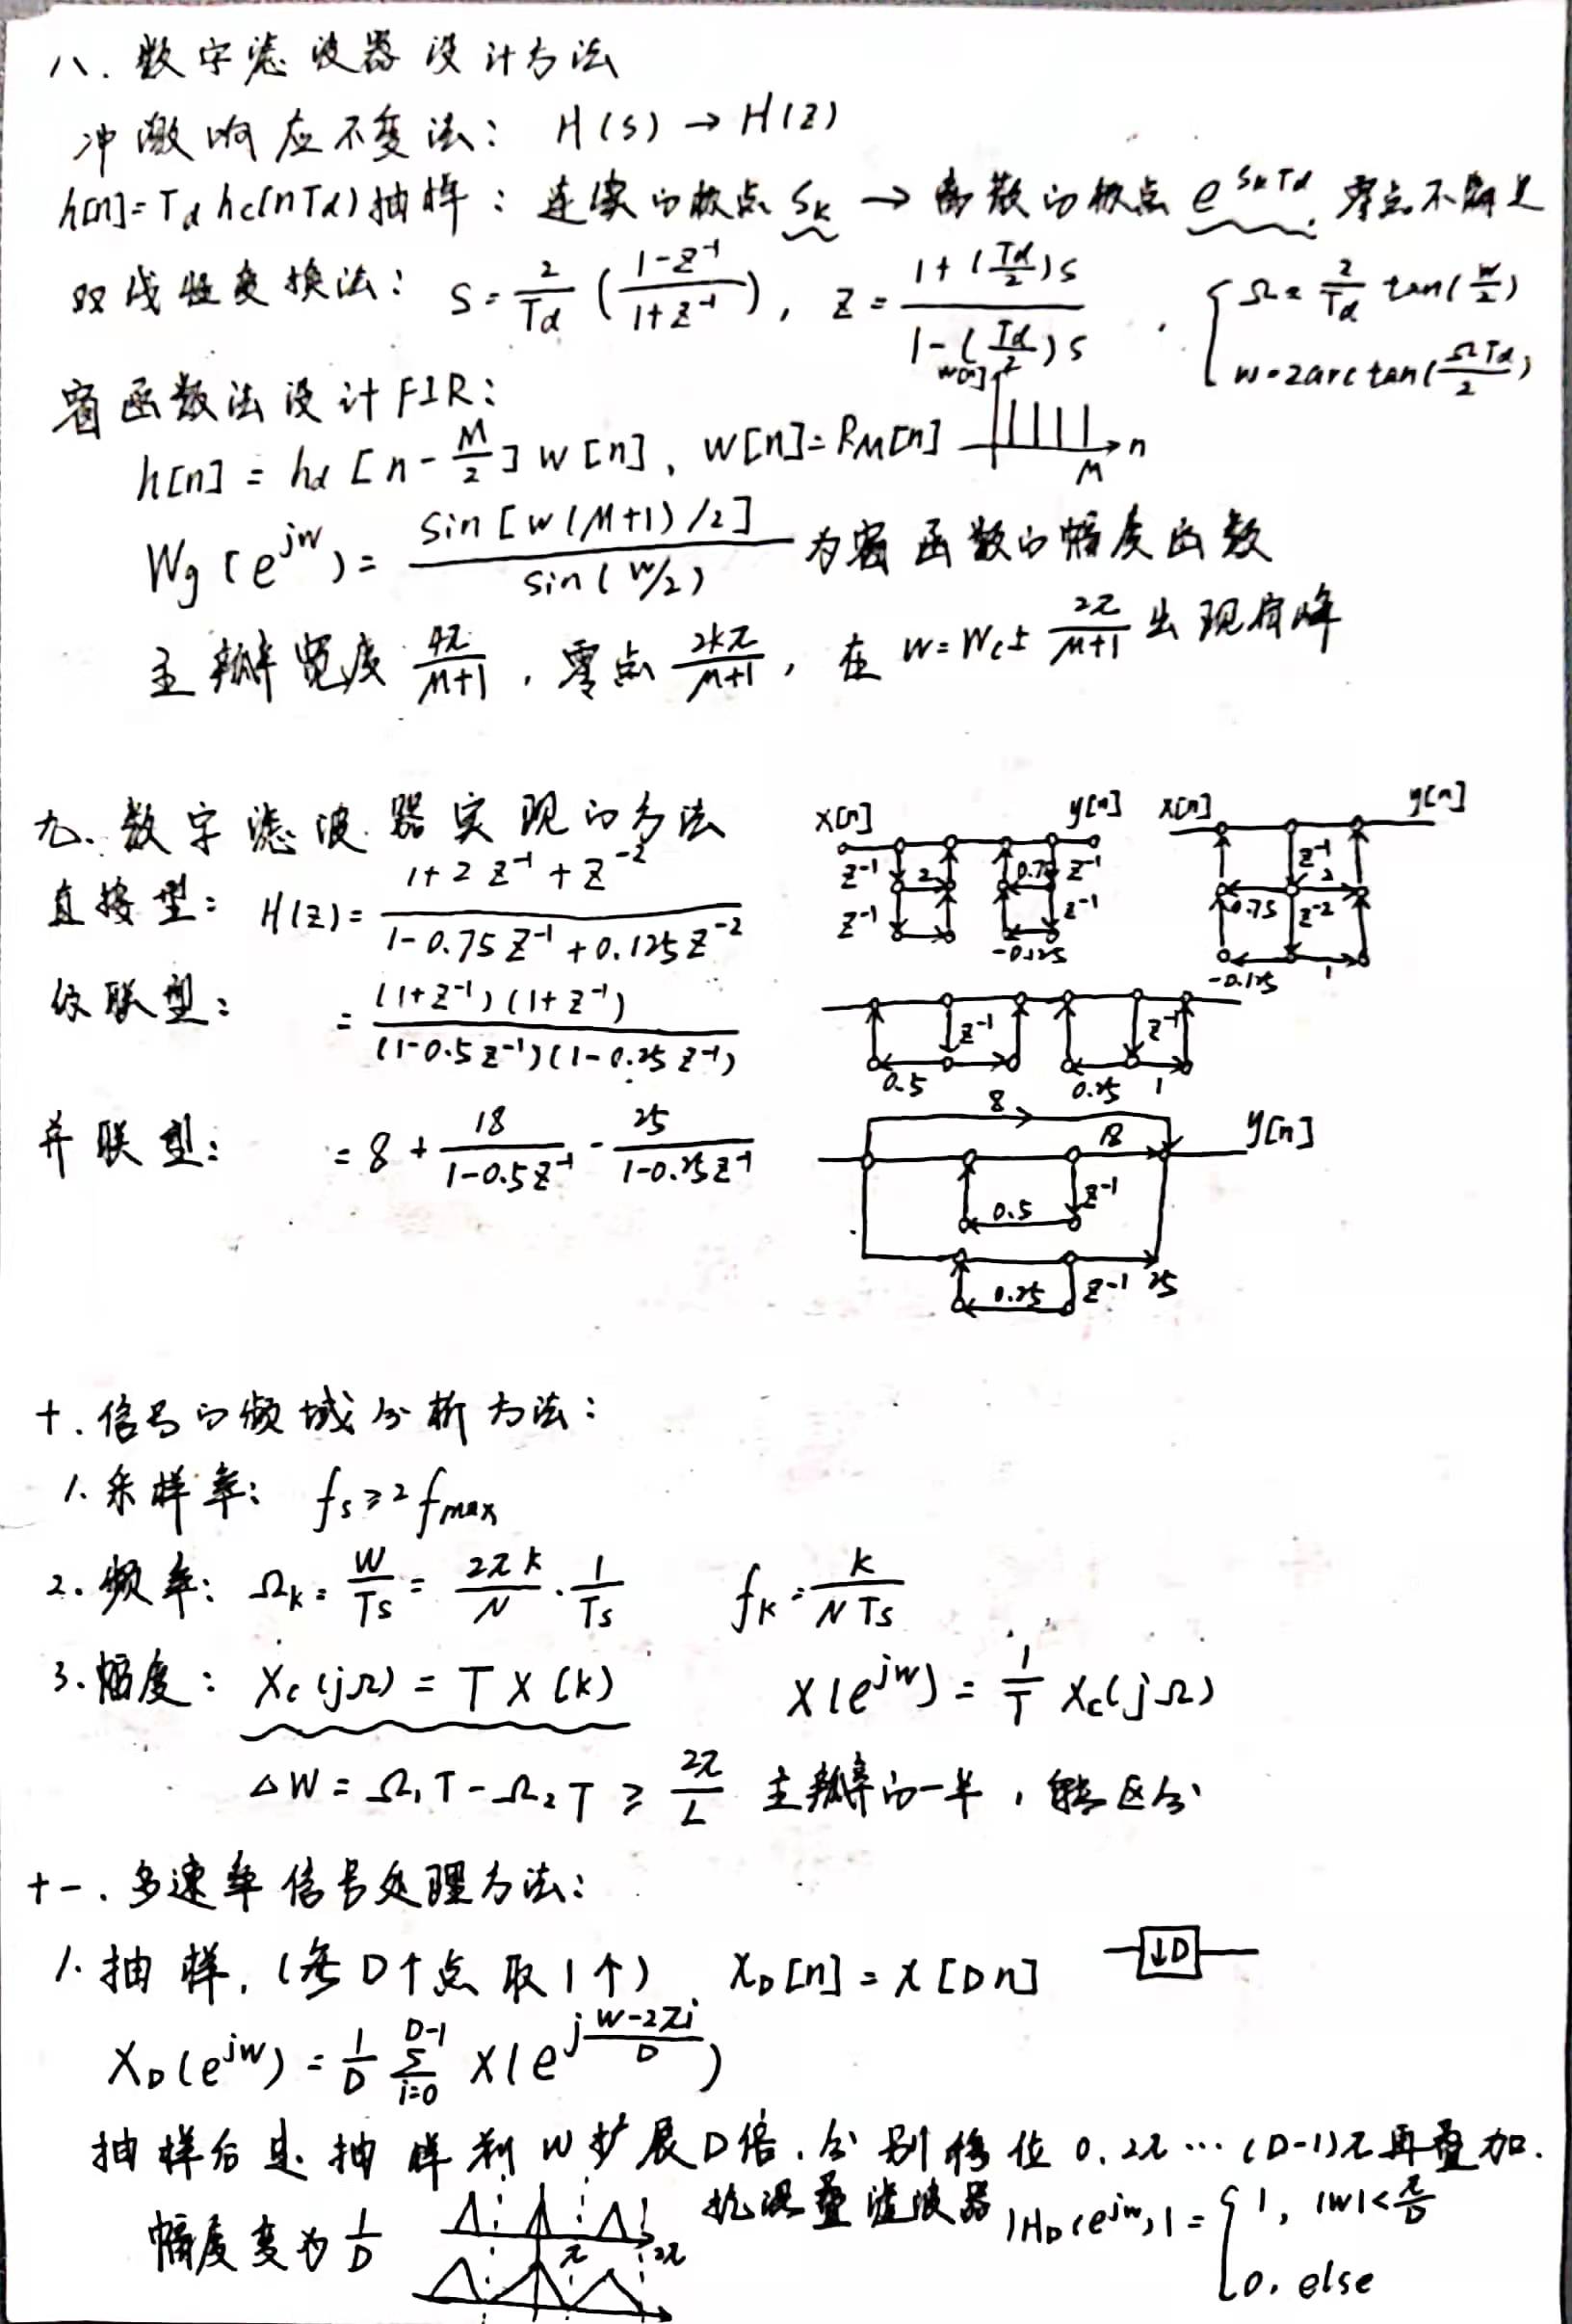 八、数字滤波器设计方法
冲激响应不变法: H(s) → H(z)
h[n]=Td hc(nTd)抽样: 连续的极点 Sk → 离散的极点 e^{SkTd}, 零点不满足
双线性变换法: S = \frac{2}{Td} (\frac{1-z^{-1}}{1+z^{-1}}), z = \frac{1+(\frac{Td}{2})s}{1-(\frac{Td}{2})s}, { Ω = \frac{2}{Td} tan(\frac{w}{2})
w=2arctan(\frac{ΩTd}{2})
窗函数法设计FIR:
w[n]
h[n] = hd[n-\frac{M}{2}] w[n], w[n]=R_M[n] M n
Wg(e^{jw}) = \frac{sin[w(M+1)/2]}{sin(w/2)} 为窗函数的幅度函数
主瓣宽度 \frac{4π}{M+1}, 零点 \frac{2kπ}{M+1}, 在 w=Wc± \frac{2π}{M+1} 出现肩峰
九、数字滤波器实现的方法
x[n] y[n] x[n] y[n]
直接型: H(z)= \frac{1+2z^{-1}+z^{-2}}{1-0.75z^{-1}+0.125z^{-2}}
z^{-1} 2 0.75 z^{-1} z^{-1} z^{-1} -0.125
z^{-1} 2 0.75 z^{-2} -0.125 1
级联型: = \frac{(1+z^{-1})(1+z^{-1})}{(1-0.5z^{-1})(1-0.25z^{-1})}
z^{-1} 0.5 z^{-1} 0.25 1
并联型: = 8 + \frac{18}{1-0.5z^{-1}} - \frac{25}{1-0.25z^{-1}}
8 18 y[n]
0.5 z^{-1}
0.25 z^{-1} 25
十、信号的频域分析方法:
1. 采样率: fs ≥ 2fmax
2. 频率: Ωk = \frac{w}{Ts} = \frac{2πk}{N} · \frac{1}{Ts} fk = \frac{k}{NTs}
3. 幅度: Xc(jΩ) = T X(k) X(e^{jw}) = \frac{1}{T} Xc(jΩ)
△W = Ω₁T-Ω₂T ≥ \frac{2π}{L} 主瓣的一半, 能区分
十一、多速率信号处理方法:
1. 抽样, (每D个点取1个) X_D[n] = x[Dn] ↓D
X_D(e^{jw}) = \frac{1}{D} \sum_{i=0}^{D-1} X(e^{j\frac{w-2πi}{D}})
抽样后是抽样前w扩展D倍, 分别移位 0, 2π … (D-1)π再叠加.
幅度变为 \frac{1}{D} π 2π 抗混叠滤波器 |H_D(e^{jw})| = { 1, |w|<\frac{π}{D}
0, else